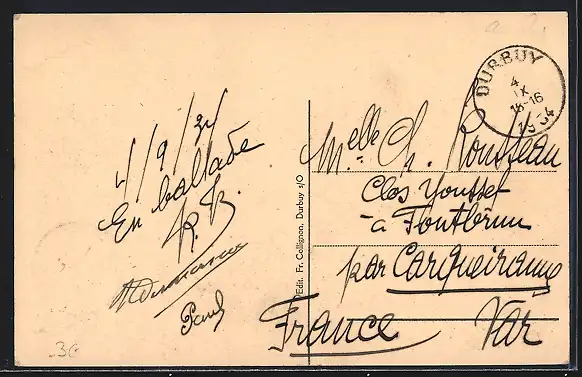 4/9/34
En ballade
R. R.
Paul
Edit. Fr. Collignon, Durbuy s/O
DURBUY
4
IX
15-16
1934
Melle Ch. Rousseau
Clos Youssef
à Fontbrun
par Carqueiranne
France Var
3c